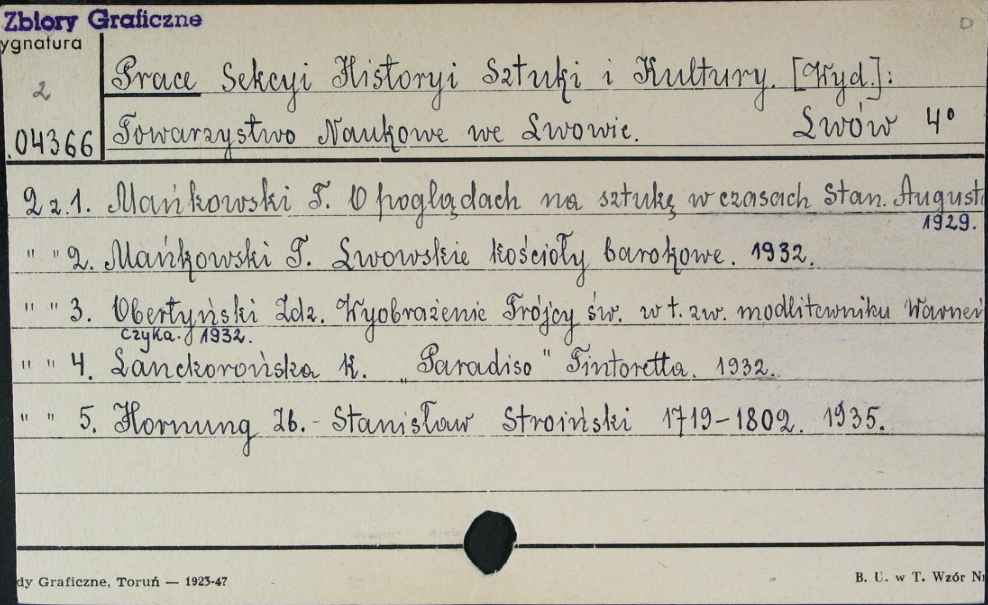 Zbiory Graficzne
ygnatura
D
2
Prace Sekcyi Historyi Sztuki i Kultury. [Wyd.]:
.04366
Towarzystwo Naukowe we Lwowie. Lwów 4°
2 z.1. Mańkowski T. O poglądach na sztukę w czasach Stan. August
1929.
" " 2. Mańkowski T. Lwowskie kościoły barokowe. 1932.
" " 3. Obertyński Zdz. Wyobrażenie Trójcy św. w t. zw. modlitewniku Warneń
czyka. 1932.
" " 4. Lanckorońska K. „Paradiso" Tintoretta. 1932.
" " 5. Hornung Zb. - Stanisław Stroiński 1719-1802. 1935.
dy Graficzne, Toruń — 1923-47
B. U. w T. Wzór Nr